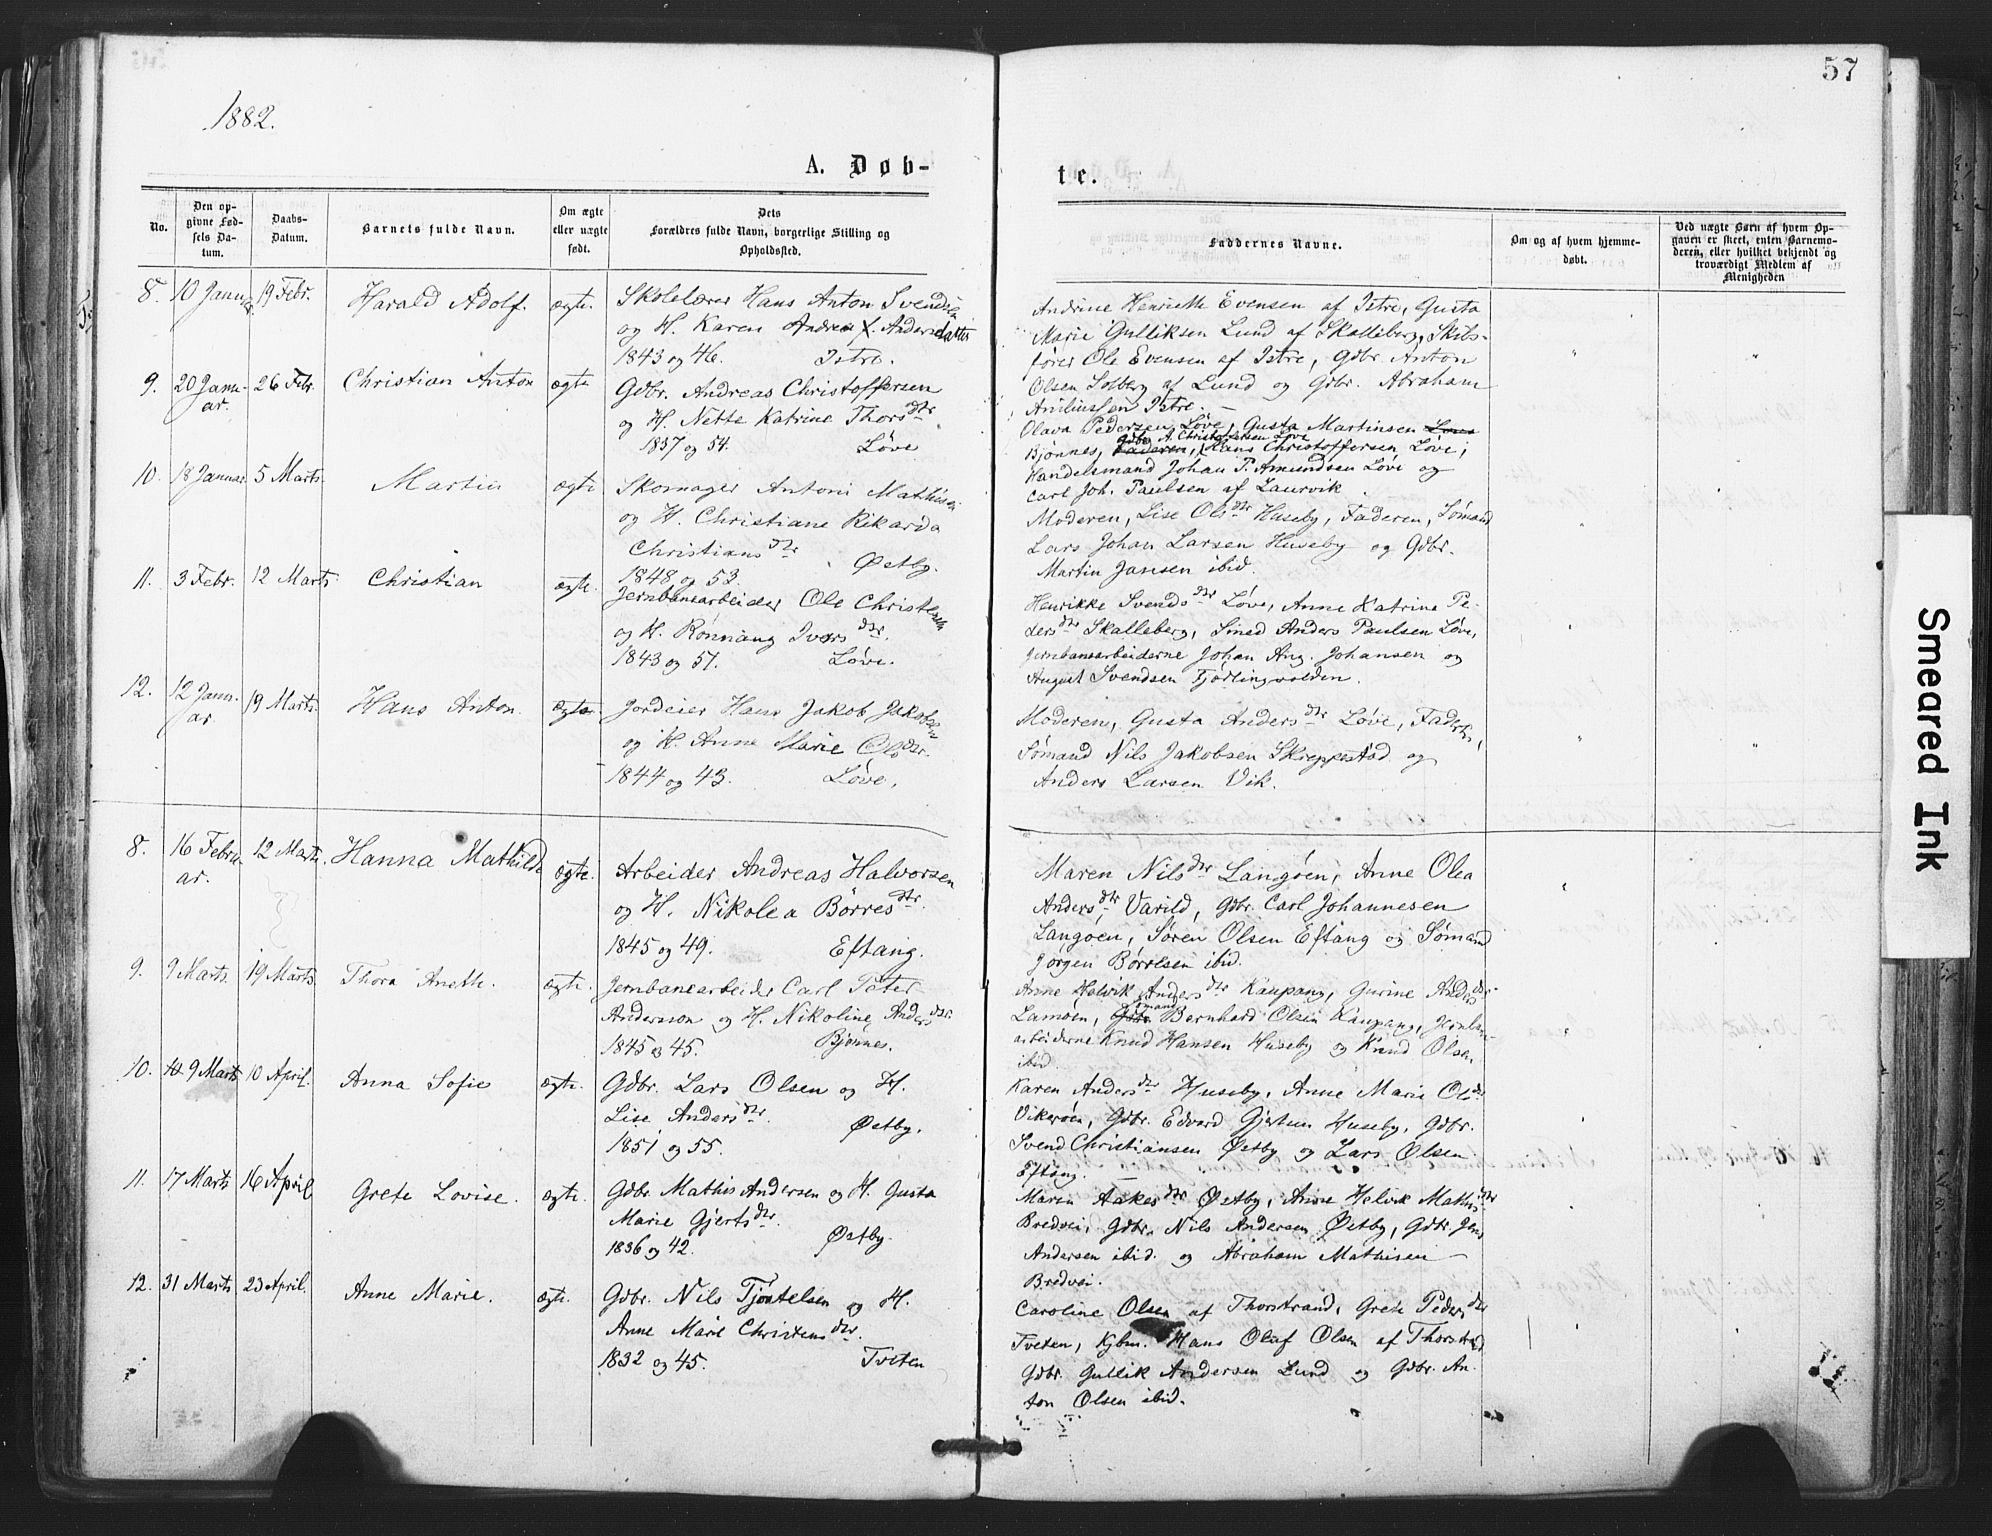 57
1882.
A. Døb-
te.
No.
Den op-
givne Fød-
sels Da-
tum.
Daabs-
Datum.
Barnets fulde Navn.
Om ægte
eller uægte
født.
Dets
Forældres fulde Navn, borgerlige Stilling og
Opholdssted.
Faddernes Navne.
Om og af hvem hjemme-
døbt.
Ved uægte Børn af hvem Op-
gaven er skeet, enten Barnemo-
deren, eller hvilket bekjendt og
troværdigt Medlem af
Menigheden
8. 10 Januar 19 Febr. Harald Adolf. ægte.
Skolelærer Hans Anton Svendsen
og H. Karen Andrea f. Andersdatter
1843 og 46. Istre.
Andrine Henriette Evensen af Istre, Gusta
Marie Gulliksen Lund af Skalleberg, Skibs-
fører Ole Evensen af Istre, Gdbr. Anton
Olsen Solberg af Lund og Gdbr. Abraham
Istre.
9. 20 Janu-
ar. 26 Febr. Christian Anton ægte
Gdbr. Andreas Christoffersen
og H. Nette Katrine Thorsdtr
1837 og 54. Løve
Olava Pedersen Løve, Gusta Martinsen Løve
Gdbr. A. Christoffersen Løve
Bjönnes, Faderen, Hans Christoffersen Løve,
Handelsmand Johan P. Amundsen Løve og
Carl Joh. Paulsen af Laurvik.
10. 18 Januar 5 Marts Martin ægte
Skomager Anton Mathisen
og H. Christiane Rikarda
Christiansdtr Østby.
1848 og 53.
Moderen, Lise Olsdtr Huseby, Faderen, Sömand
Lars Johan Larsen Huseby og Gdbr.
Martin Jansen ibid.
11. 3 Febr. 12 Marts Christian ægte.
Jernbanearbeider Ole Christensen
og H. Rönnaug Iversdtr.
1843 og 57. Løve.
Henrikke Svendsdtr Løve, Anne Katrine Pe-
dersdtr Skalleberg, Smed Anders Paulsen Løve,
Jernbanearbeiderne Johan Aug. Johansen og
August Svendsen
12. 12 Janu-
ar 19 Marts. Hans Anton. ægte
Jordeier Hans Jakob Jakobsen
og H. Anne Marie Olsdtr.
1844 og 43. Løve.
Moderen, Gusta Andersdtr Løve, Faderen,
Sömand Nils Jakobsen Skreppestad og
Anders Larsen Vik.
8. 16 Febru-
ar. 12 Marts. Hanna Mathilde ægte.
Arbeider Andreas Halvorsen
og H. Nikolea Börresdtr.
1845 og 49. Eftang.
Maren Nilsdtr Langöen, Anne Olea
Andersdtr Varild, Gdbr. Carl Johannesen
Langöen, Sören Olsen Eftang og Sömand
Jörgen Börresen ibid.
9. 9 Marts. 19 Marts. Thora Aneth. ægte.
Jernbanearbeider Carl Peter
Andersson og H. Nikoline Andersdtr.
1845 og 45. Bjönnes.
Anne Helvik Andersdtr Kaupang, Gurine Andersdtr
Sömand
Lamöen, Gdbr. Bernhard Olsen Kaupang, Jernban-
arbeiderne Knud Hansen Huseby og Knud Olsen
ibid.
10. 10 9 Marts 10 April. Anna Sofie ægte.
Gdbr. Lars Olsen og H.
Lise Andersdtr.
1851 og 55. Østby.
Karen Andersdtr Huseby, Anne Marie Olsdtr
Vikeröen, Gdbr. Edvard Gjertsen Huseby, Gdbr.
Svend Christiansen Østby og Lars Olsen
Eftang.
11. 17 Marts 16 April Grete Lovise. ægte.
Gdbr. Mathis Andersen og H. Gusta
Marie Gjertsdtr.
1836 og 42. Østby.
Maren Aakesdtr Østby, Anne Helvik Mathisdtr
Bredvei, Gdbr. Nils Andersen Østby, Gdbr. Jens
Andersen ibid. og Abraham Mathisen
Bredvei.
12. 31 Marts 23 April. Anne Marie. ægte.
Gdbr. Nils Tjostelsen og H.
Anne Marie Christensdtr.
1832 og 45. Tveten
Caroline Olsen af Thorstrand, Grete Pedersdtr
Tveten, Kjbm. Hans Olaf Olsen af Thorstrand
Gdbr. Gullik Andersen Lund og Gdbr. An-
ton Olsen ibid.
Smeared Ink